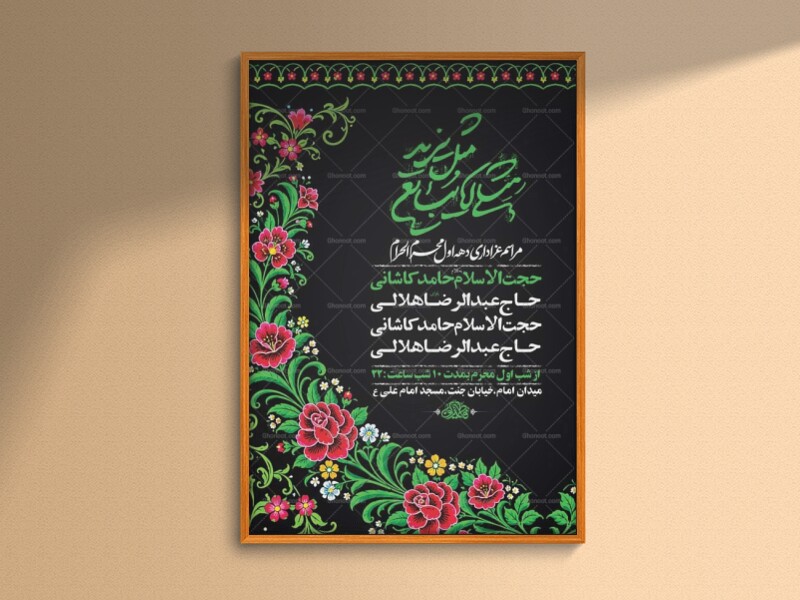 مثلی لا یبایع
مثل یزید
مراسم عزاداری دهه اول محرم الحرام
حجت الاسلام حامد کاشانی
حاج عبدالرضا هلالی
حجت الاسلام حامد کاشانی
حاج عبدالرضا هلالی
از شب اول محرم بمدت ۱۰ شب ساعت: ۲۲
میدان امام، خیابان جنت، مسجد امام علی ع
Ghonoot.com